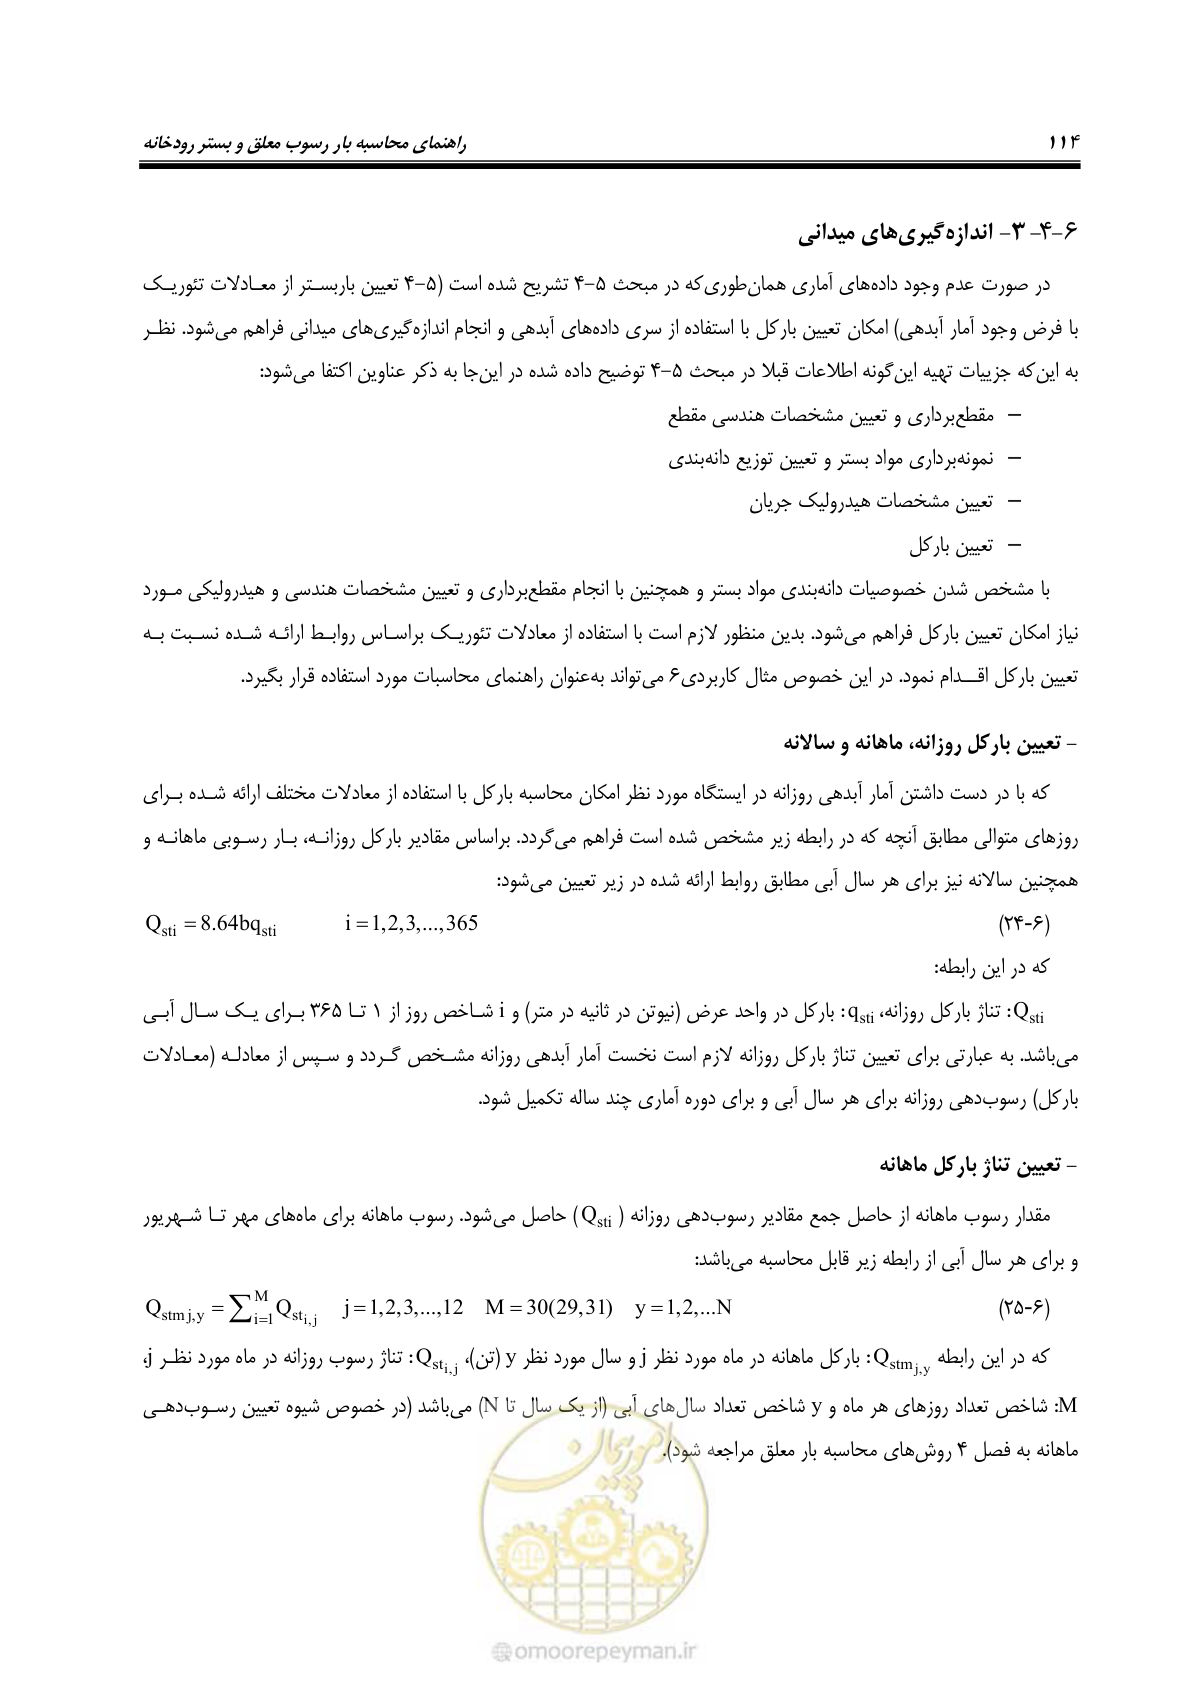 ۱۱۴ راهنمای محاسبه بار رسوب معلق و بستر رودخانه
۶-۴- ۳- اندازه‌گیری‌های میدانی
در صورت عدم وجود داده‌های آماری همان‌طوری‌که در مبحث ۵-۴ تشریح شده است (۵-۴ تعیین باربستر از معادلات تئوریک
با فرض وجود آمار آبدهی) امکان تعیین بارکل با استفاده از سری داده‌های آبدهی و انجام اندازه‌گیری‌های میدانی فراهم می‌شود. نظر
به این‌که جزییات تهیه این‌گونه اطلاعات قبلا در مبحث ۵-۴ توضیح داده شده در این‌جا به ذکر عناوین اکتفا می‌شود:
– مقطع‌برداری و تعیین مشخصات هندسی مقطع
– نمونه‌برداری مواد بستر و تعیین توزیع دانه‌بندی
– تعیین مشخصات هیدرولیک جریان
– تعیین بارکل
با مشخص شدن خصوصیات دانه‌بندی مواد بستر و همچنین با انجام مقطع‌برداری و تعیین مشخصات هندسی و هیدرولیکی مورد
نیاز امکان تعیین بارکل فراهم می‌شود. بدین منظور لازم است با استفاده از معادلات تئوریک براساس روابط ارائه شده نسبت به
تعیین بارکل اقدام نمود. در این خصوص مثال کاربردی۶ می‌تواند به‌عنوان راهنمای محاسبات مورد استفاده قرار بگیرد.
– تعیین بارکل روزانه، ماهانه و سالانه
که با در دست داشتن آمار آبدهی روزانه در ایستگاه مورد نظر امکان محاسبه بارکل با استفاده از معادلات مختلف ارائه شده برای
روزهای متوالی مطابق آنچه که در رابطه زیر مشخص شده است فراهم می‌گردد. براساس مقادیر بارکل روزانه، بار رسوبی ماهانه و
همچنین سالانه نیز برای هر سال آبی مطابق روابط ارائه شده در زیر تعیین می‌شود:
(۶-۲۴) Q_sti = 8.64bq_sti i = 1,2,3,...,365
که در این رابطه:
Q_sti: تناژ بارکل روزانه، q_sti: بارکل در واحد عرض (نیوتن در ثانیه در متر) و i شاخص روز از ۱ تا ۳۶۵ برای یک سال آبی
می‌باشد. به عبارتی برای تعیین تناژ بارکل روزانه لازم است نخست آمار آبدهی روزانه مشخص گردد و سپس از معادله (معادلات
بارکل) رسوب‌دهی روزانه برای هر سال آبی و برای دوره آماری چند ساله تکمیل شود.
– تعیین تناژ بارکل ماهانه
مقدار رسوب ماهانه از حاصل جمع مقادیر رسوب‌دهی روزانه (Q_sti) حاصل می‌شود. رسوب ماهانه برای ماه‌های مهر تا شهریور
و برای هر سال آبی از رابطه زیر قابل محاسبه می‌باشد:
(۶-۲۵) Q_stm j,y = ∑_{i=1}^{M} Q_st_i,j j = 1,2,3,...,12 M = 30(29,31) y = 1,2,...N
که در این رابطه Q_stm_j,y: بارکل ماهانه در ماه مورد نظر j و سال مورد نظر y (تن)، Q_st_i,j: تناژ رسوب روزانه در ماه مورد نظر j،
M: شاخص تعداد روزهای هر ماه و y شاخص تعداد سال‌های آبی (از یک سال تا N) می‌باشد (در خصوص شیوه تعیین رسوب‌دهی
ماهانه به فصل ۴ روش‌های محاسبه بار معلق مراجعه شود).
امور پیمان
@omoorepeyman.ir